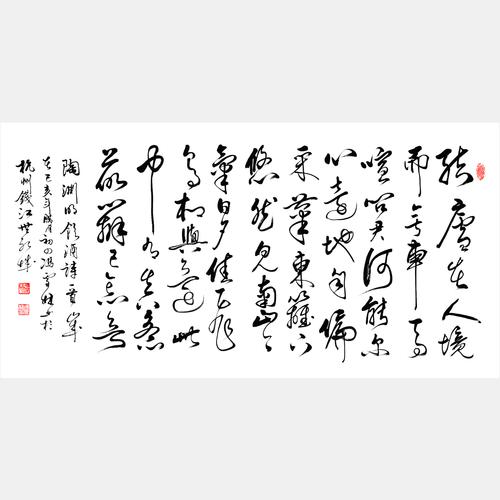 結廬在人境
而無車馬
喧問君何能爾
心遠地自偏
采菊東籬下
悠然見南山々
氣日夕佳飛
鳥相與還此
中有真意
欲辯已忘言
陶淵明飲酒詩一首歲
在己亥年臘月初四馮雪於
杭州錢江世紀